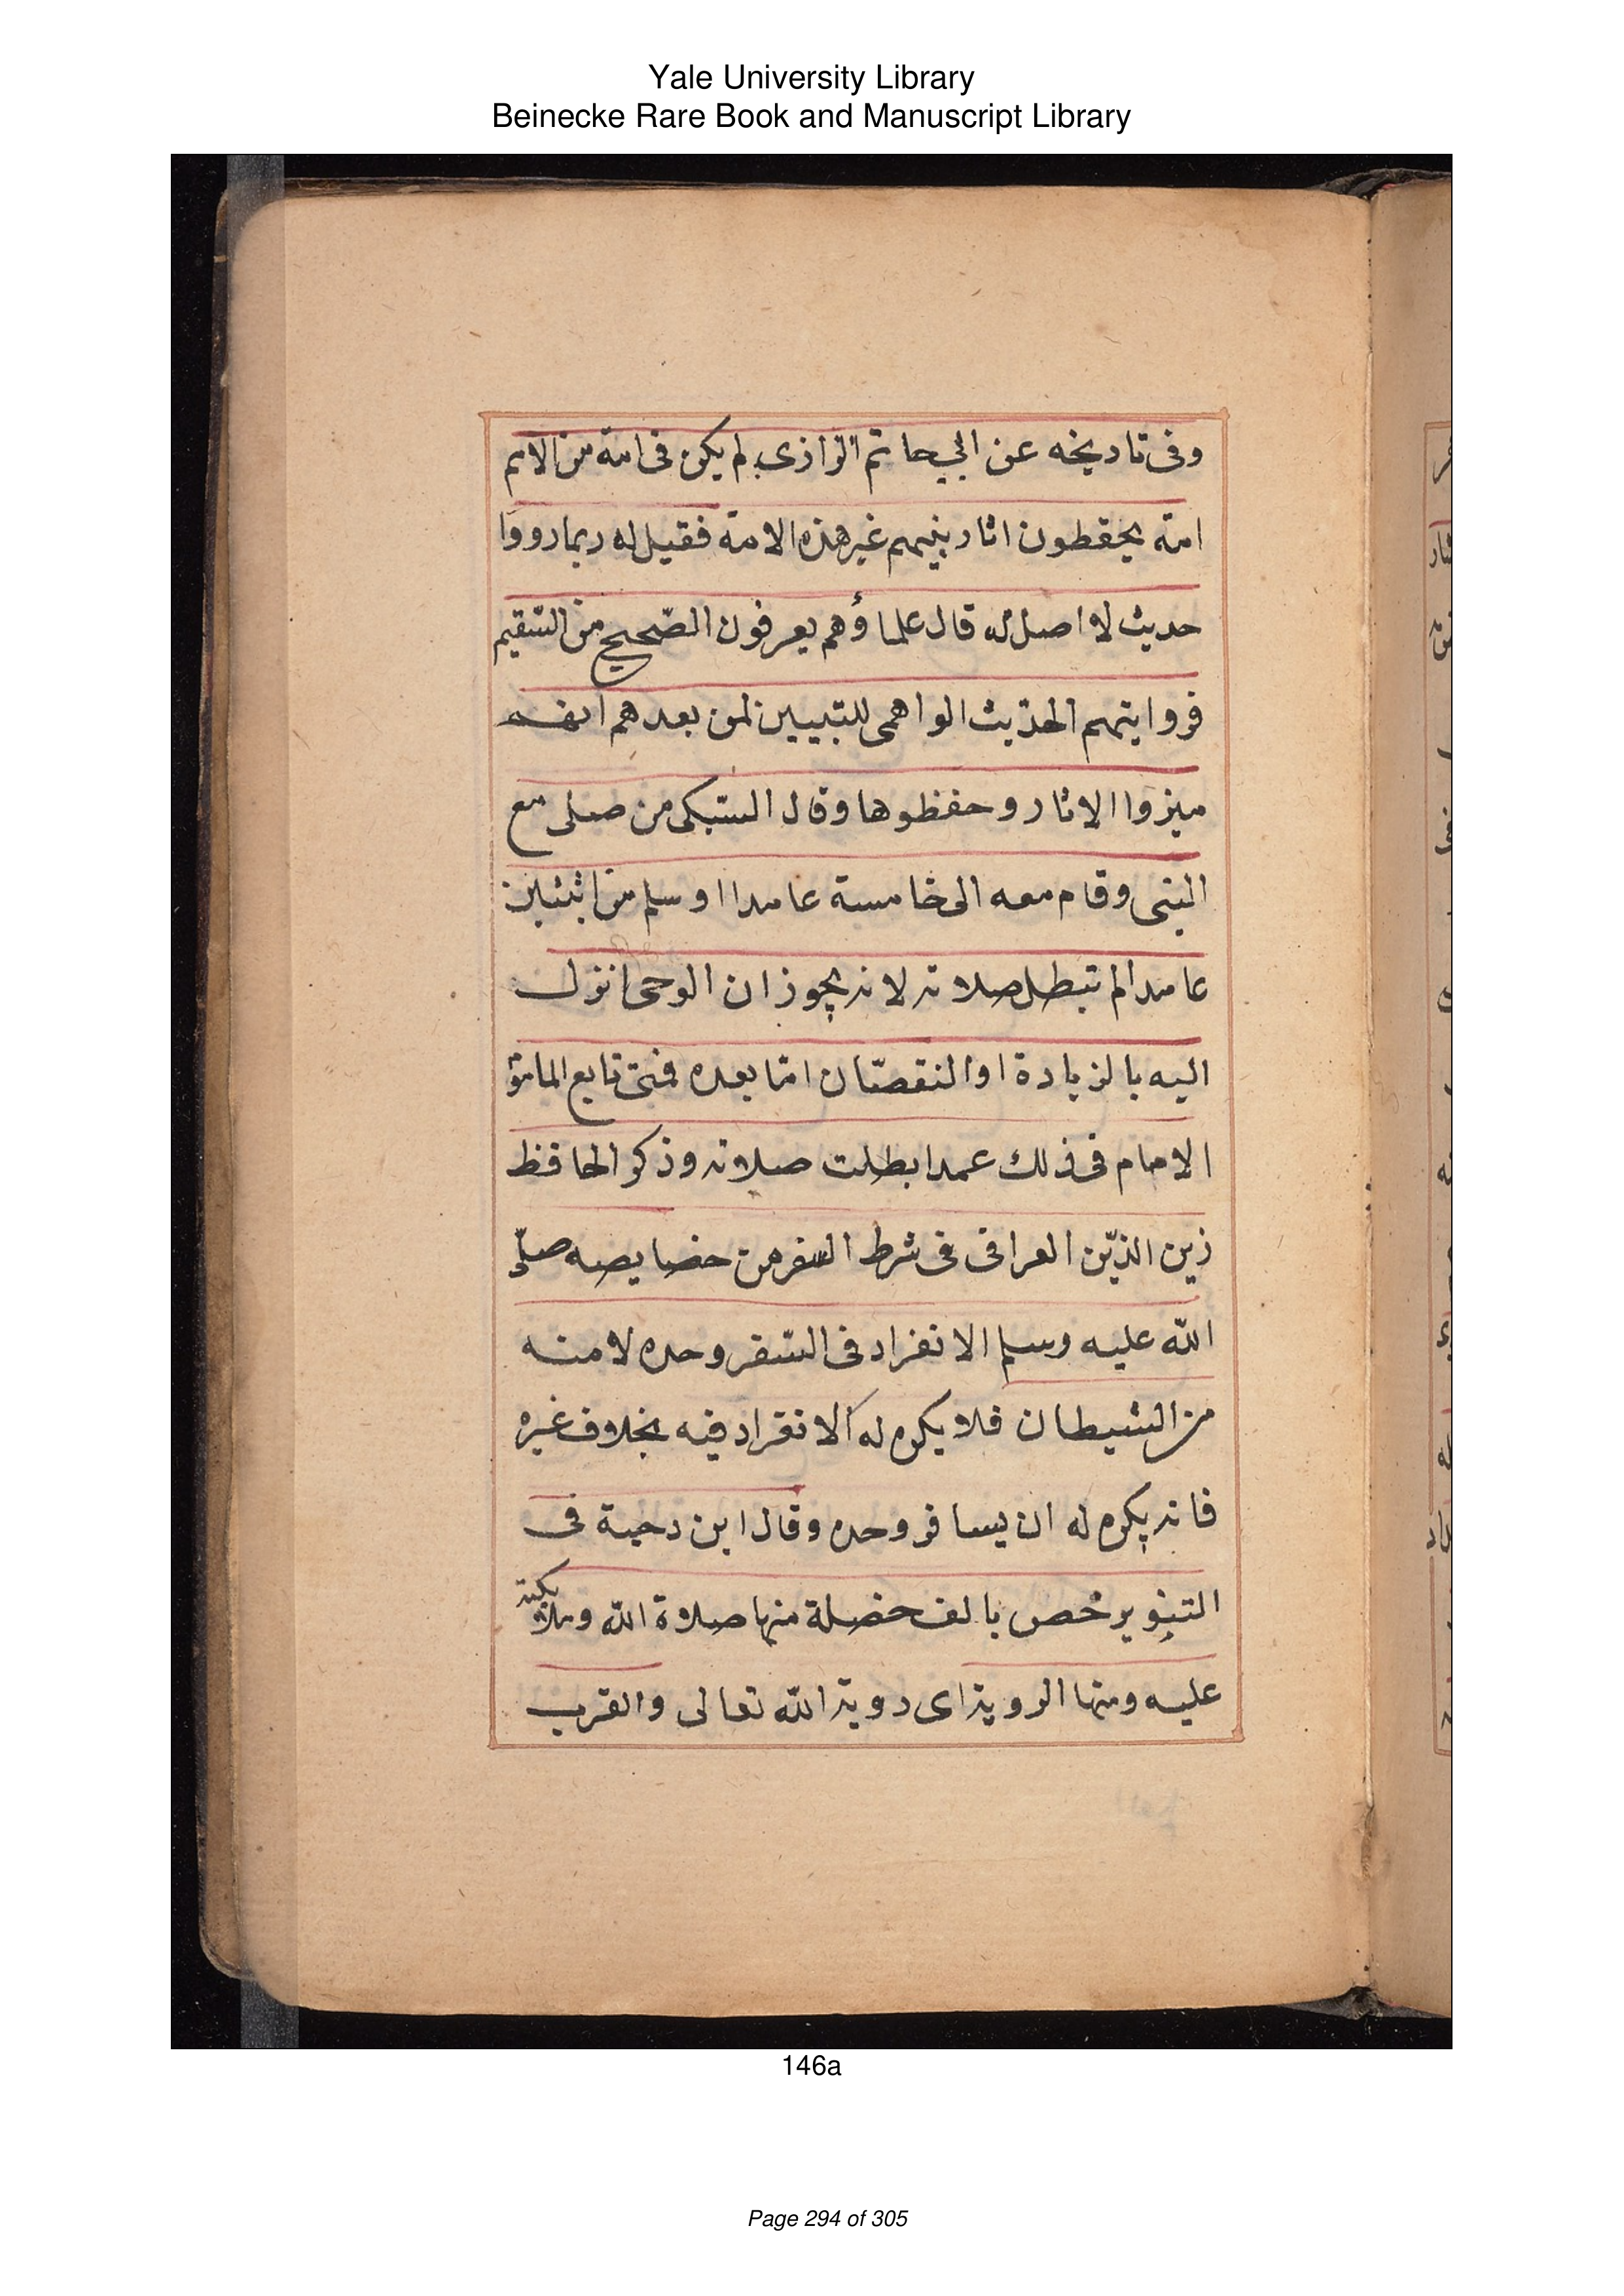 Yale University Library
Beinecke Rare Book and Manuscript Library
وفى تاريخه عن ابي حاتم الرازى لم يكن فى امة من الامم
امة يحفظون اثار نبيهم غير هذه الامة فقيل له ربما رووا
حديث لا اصل له قال علماؤهم يعرفون الصّحيح من السّقيم
فروايتهم الحديث الواهى للتبيين لمن بعدهم انهم
ميزوا الاثار وحفظوها وقال السّبكى من صلى مع
النبى وقام معه الى خامسة عامدا او سلم من اثنتين
عامدا لم تبطل صلاته لانه يجوز ان الوحى انزل
اليه بالزيادة او النقصان امّا بعده فمتى تابع المامو
الامام فى ذلك عمدا بطلت صلاته وذكر الحافظ
زين الدّين العراقى فى شرط السفر من خصايصه صلّى
اللّه عليه وسلم الانفراد فى السّفر وحده لامنه
من الشيطان فلا يكره له الانفراد فيه بخلاف غيره
فانه يكره له ان يسافر وحده وقال ابن دحية فى
التنوير خص بالف خصلة منها صلاة اللّه وملائكته
عليه ومنها الروية اى روية اللّه تعالى والقرب
146a
Page 294 of 305